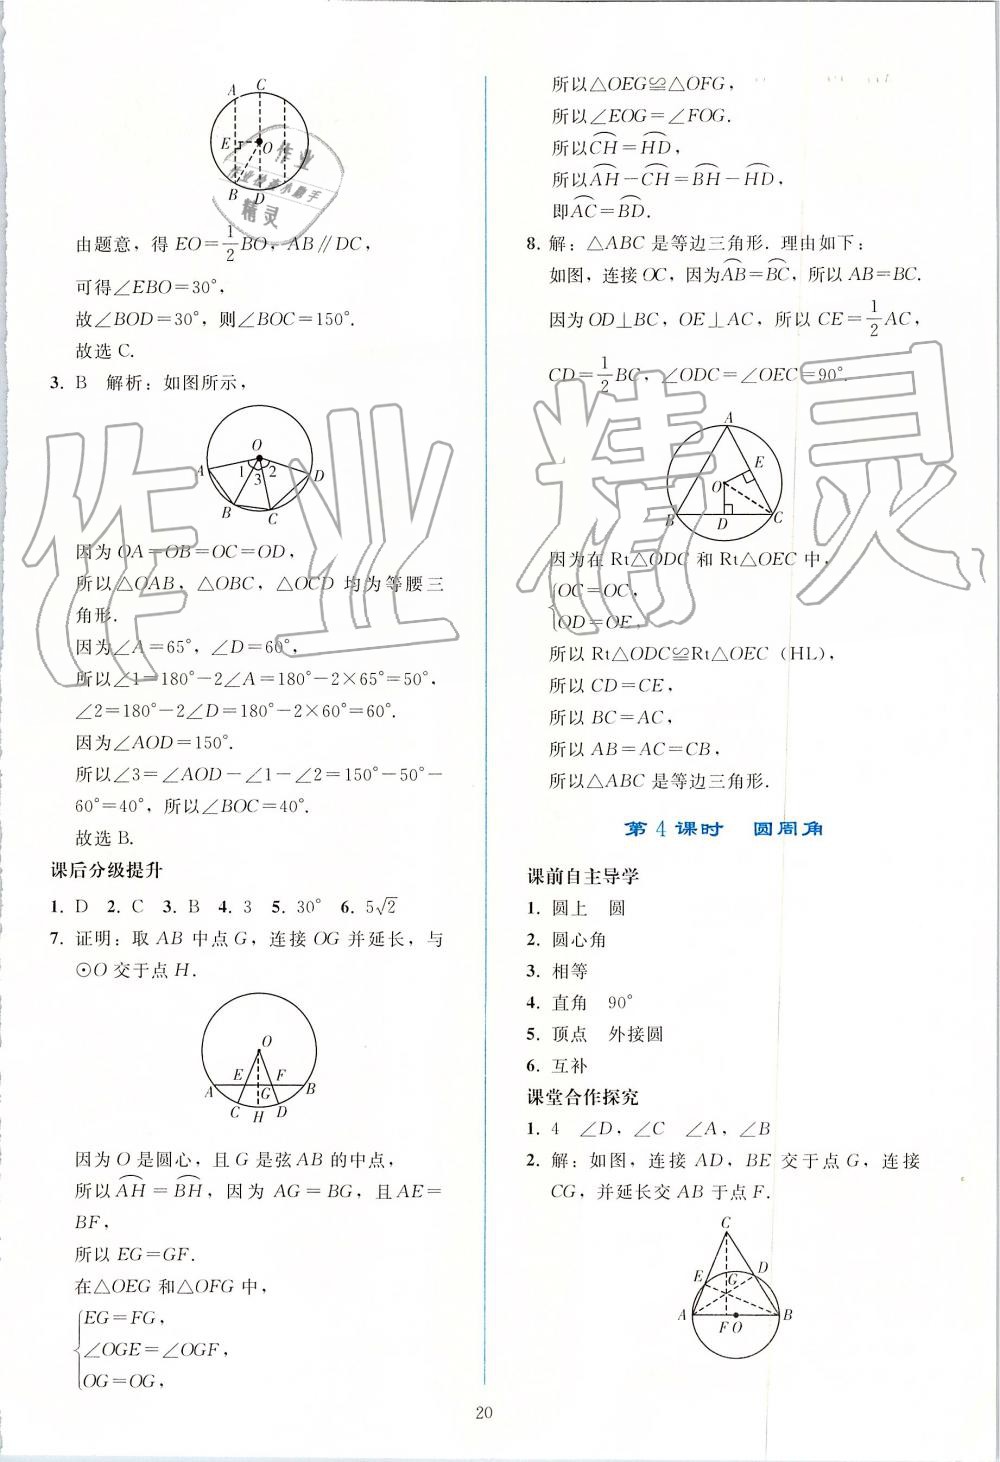 A C
E O
B D
由题意，得EO=1/2BO，AB∥DC，
可得∠EBO=30°，
故∠BOD=30°，则∠BOC=150°.
故选C.
3. B 解析：如图所示，
O
A 1 2 D
3
B C
因为OA=OB=OC=OD，
所以△OAB，△OBC，△OCD均为等腰三
角形.
因为∠A=65°，∠D=60°，
所以∠1=180°-2∠A=180°-2×65°=50°，
∠2=180°-2∠D=180°-2×60°=60°.
因为∠AOD=150°.
所以∠3=∠AOD-∠1-∠2=150°-50°-
60°=40°，所以∠BOC=40°.
故选B.
课后分级提升
1. D 2. C 3. B 4. 3 5. 30° 6. 5√2
7. 证明：取AB中点G，连接OG并延长，与
⊙O交于点H.
O
E F
A G B
C H D
因为O是圆心，且G是弦AB的中点，
所以⌒AH=⌒BH，因为AG=BG，且AE=
BF，
所以EG=GF.
在△OEG和△OFG中，
EG=FG，
∠OGE=∠OGF，
OG=OG，
所以△OEG≌△OFG，
所以∠EOG=∠FOG.
所以⌒CH=⌒HD，
所以⌒AH-⌒CH=⌒BH-⌒HD，
即⌒AC=⌒BD.
8. 解：△ABC是等边三角形.理由如下：
如图，连接OC，因为⌒AB=⌒BC，所以AB=BC.
因为OD⊥BC，OE⊥AC，所以CE=1/2AC，
CD=1/2BC，∠ODC=∠OEC=90°.
A
E
O
B D C
因为在Rt△ODC和Rt△OEC中，
OC=OC，
OD=OE，
所以Rt△ODC≌Rt△OEC（HL），
所以CD=CE，
所以BC=AC，
所以AB=AC=CB，
所以△ABC是等边三角形.
第4课时 圆周角
课前自主导学
1. 圆上 圆
2. 圆心角
3. 相等
4. 直角 90°
5. 顶点 外接圆
6. 互补
课堂合作探究
1. 4 ∠D，∠C ∠A，∠B
2. 解：如图，连接AD，BE交于点G，连接
CG，并延长交AB于点F.
C
E G D
A F O B
20
作业精灵
作业
作业检查小助手
精灵